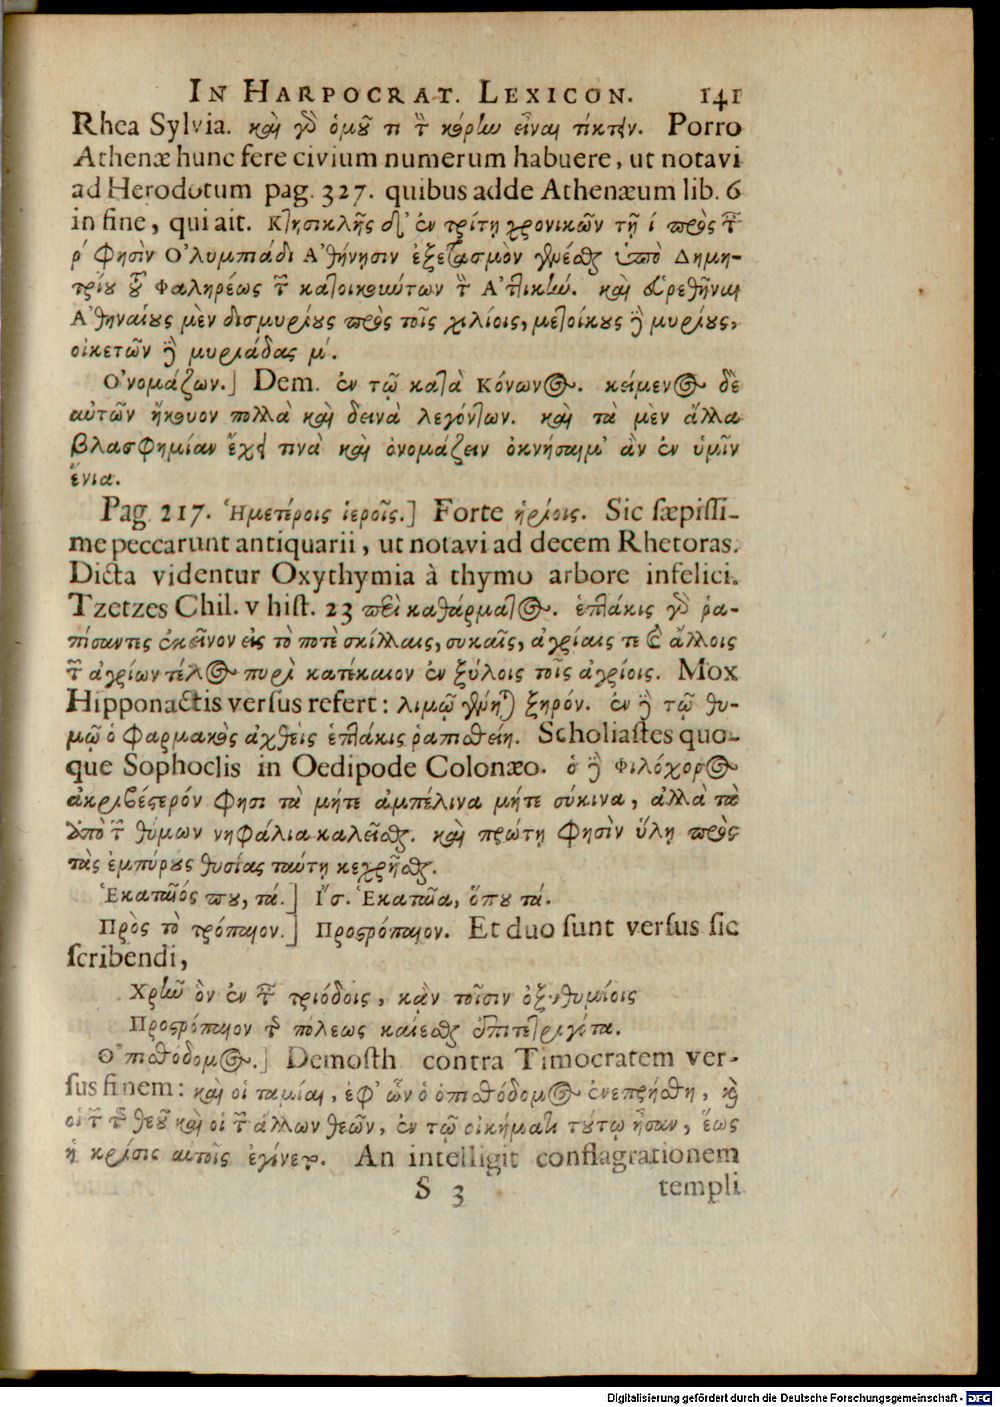 IN HARPOCRAT. LEXICON. 141
Rhea Sylvia. καὶ γὸ ὁμοῦ τι τὴν κόρην εἶναι τίκτειν. Porro
Athenæ hunc fere civium numerum habuere, ut notavi
ad Herodotum pag. 327. quibus adde Athenæum lib. 6
in fine, qui ait. Κτησικλῆς δ' ἐν τρίτῃ χρονικῶν τῇ ί πρὸς τῶν
ρ́ φησὶν Ὀλυμπιάδι Ἀθήνησιν ἐξετασμὸν γενέσθαι ὑπὸ Δημη-
τρίου τοῦ Φαληρέως τῶν κατοικούντων τὴν Ἀττικὴν. καὶ εὑρεθῆναι
Ἀθηναίους μὲν δισμυρίους πρὸς τοῖς χιλίοις, μετοίκους δὲ μυρίους,
οἰκετῶν δὲ μυριάδας μ́.
Ὀνομάζων.] Dem. ἐν τῷ κατὰ Κόνωνος. κείμενος δὲ
αὐτῶν ἤκουον πολλὰ καὶ δεινὰ λεγόντων. καὶ τὰ μὲν ἄλλα
βλασφημίαν ἔχει τινὰ καὶ ὀνομάζειν ὀκνήσαιμ' ἀν ἐν ὑμῖν
ἔνια.
Pag. 217. Ἡμετέροις ἱεροῖς.] Forte ἠρίοις. Sic sæpissi-
me peccarunt antiquarii, ut notavi ad decem Rhetoras.
Dicta videntur Oxythymia à thymo arbore infelici.
Tzetzes Chil. v hist. 23 περὶ καθάρματος. ἑπτάκις γὸ ῥα-
πίσαντες ἐκεῖνον εἰς τὸ ποτὲ σκίλλαις, συκαῖς, ἀγρίαις τε καὶ ἄλλοις
τῶν ἀγρίων τέλος πυρὶ κατέκαιον ἐν ξύλοις τοῖς ἀγρίοις. Mox
Hipponactis versus refert: λιμῷ γένηται ξηρόν. ἐν δὲ τῷ θυ-
μῷ ὁ φαρμακὸς ἀχθεὶς ἑπτάκις ῥαπισθείη. Scholiastes quo-
que Sophoclis in Oedipode Colonæo. ὁ δὲ Φιλόχορος
ἀκριβέστερόν φησι τὰ μήτε ἀμπέλινα μήτε σύκινα, ἀλλὰ τὰ
ἀπὸ τῶν θύμων νηφάλια καλεῖσθαι. καὶ πρώτῃ φησὶν ὕλῃ πρὸς
τὰς ἐμπύρους θυσίας ταύτῃ κεχρῆσθαι.
Ἑκαταῖός που, τά.] Ἴσ. Ἑκαταῖα, ὅπου τά.
Πρὸς τὸ τρόπαιον.] Προστρόπαιον. Et duo sunt versus sic
scribendi,
Χρῆν ὃν ἐν τῶν τριόδοις, κἀν τοῖσιν ὀξυθυμίοις
Προστρόπαιον τῆς πόλεως καίεσθαι ἐπιτετριγότα.
Ὀπισθόδομος.] Demosth contra Timocratem ver-
sus finem: καὶ οἱ ταμίαι, ἐφ' ὧν ὁ ὀπισθόδομος ἐνεπρήσθη, καὶ
οἱ τῶν τῆς θεοῦ καὶ οἱ τῶν ἄλλων θεῶν, ἐν τῷ οἰκήματι τούτῳ ἦσαν, ἕως
ἡ κρίσις αὐτοῖς ἐγίνετο. An intelligit conflagrationem
S 3 templi
Digitalisierung gefördert durch die Deutsche Forschungsgemeinschaft - DFG